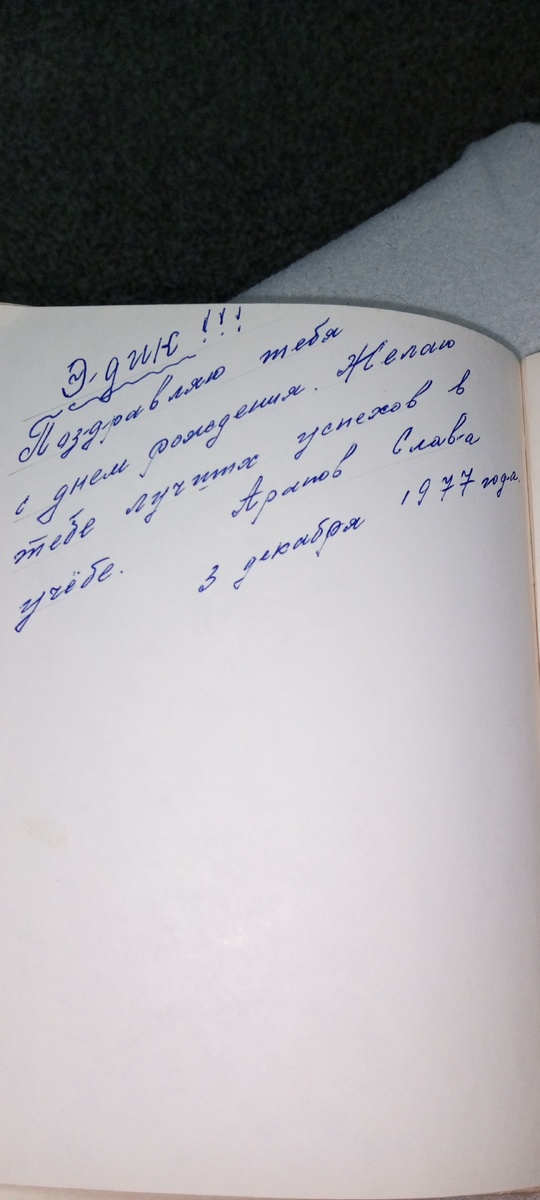 Эдик!!!
Поздравляю тебя
с днем рождения. Желаю
тебе лучших успехов в
учёбе. Арапов Слава
3 декабря 1977 года.